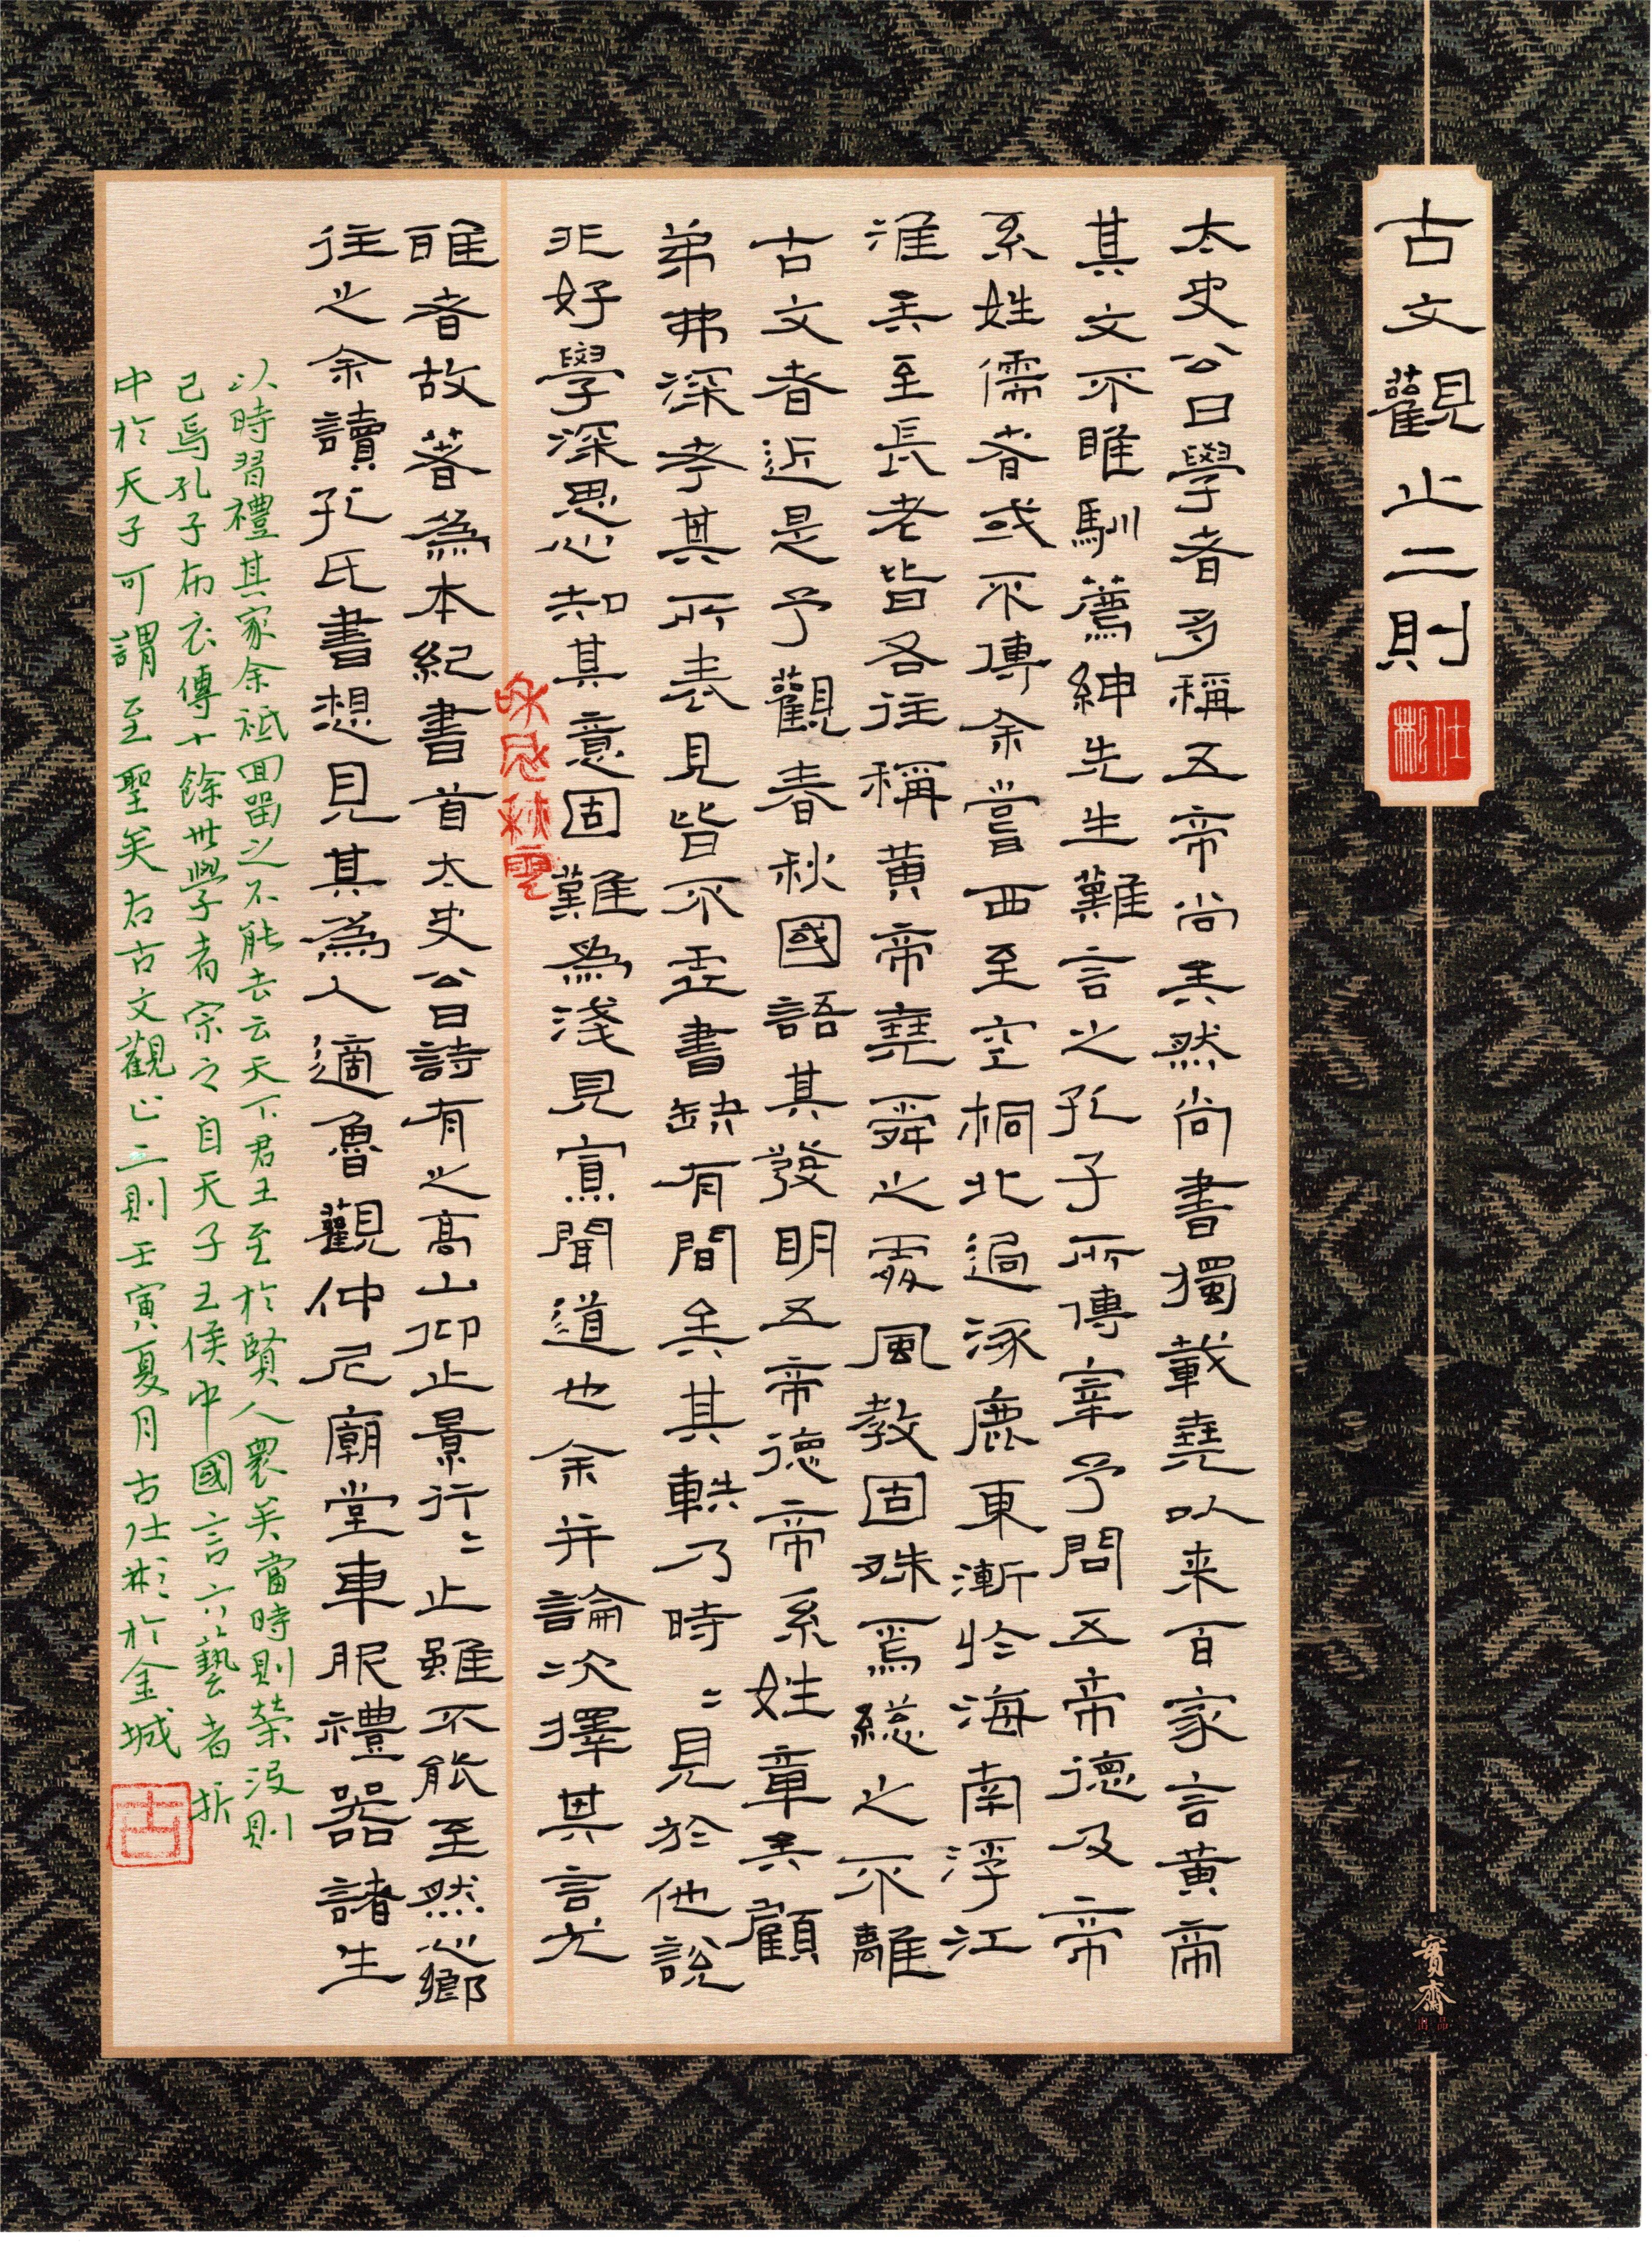 古文觀止二則
仕彬
太史公曰學者多稱五帝尚矣然尚書獨載堯以来百家言黃帝
其文不雅馴薦紳先生難言之孔子所傳宰予問五帝德及帝
系姓儒者或不傳余嘗西至空桐北過涿鹿東漸於海南浮江
淮矣至長老皆各往稱黃帝堯舜之處風教固殊焉總之不離
古文者近是予觀春秋國語其發明五帝德帝系姓章矣顧
弟弗深考其所表見皆不虛書缺有間矣其軼乃時〻見於他說
非好學深思心知其意固難為淺見寡聞道也余并論次擇其言尤
雅者故著為本紀書首太史公曰詩有之高山仰止景行〻止雖不能至然心鄉
往之余讀孔氏書想見其為人適魯觀仲尼廟堂車服禮器諸生
以時習禮其家余祗回留之不能去云天下君王至於賢人衆矣當時則榮沒則
已焉孔子布衣傳十餘世學者宗之自天子王侯中國言六藝者折
中於夫子可謂至聖矣右古文觀止二則壬寅夏月古仕彬於金城
古
實齋
出品